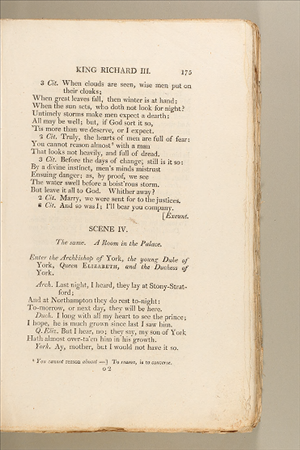 KING RICHARD III. 175
3 Cit. When clouds are seen, wise men put on
their cloaks;
When great leaves fall, then winter is at hand;
When the sun sets, who doth not look for night?
Untimely storms make men expect a dearth:
All may be well; but, if God sort it so,
'Tis more than we deserve, or I expect.
2 Cit. Truly, the hearts of men are full of fear:
You cannot reason¹ almost with a man
That looks not heavily, and full of dread.
3 Cit. Before the days of change, still is it so:
By a divine instinct, men's minds mistrust
Ensuing danger; as, by proof, we see
The water swell before a boist'rous storm.
But leave it all to God. Whither away?
2 Cit. Marry, we were sent for to the justices.
3 Cit. And so was I; I'll bear you company.
[Exeunt.
SCENE IV.
The same. A Room in the Palace.
Enter the Archbishop of York, the young Duke of
York, Queen ELIZABETH, and the Duchess of
York.
Arch. Last night, I heard, they lay at Stony-Strat-
ford;
And at Northampton they do rest to-night:
To-morrow, or next day, they will be here.
Duch. I long with all my heart to see the prince;
I hope, he is much grown since last I saw him.
Q. Eliz. But I hear, no; they say, my son of York
Hath almost over-ta'en him in his growth.
York. Ay, mother, but I would not have it so.
¹ You cannot reason almost —] To reason, is to converse.
O 2